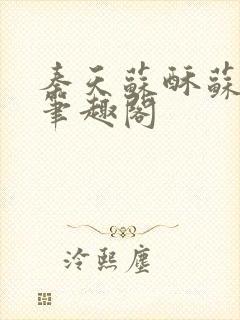 秦天蘇酥蘇
筆趣閣
冷熙塵